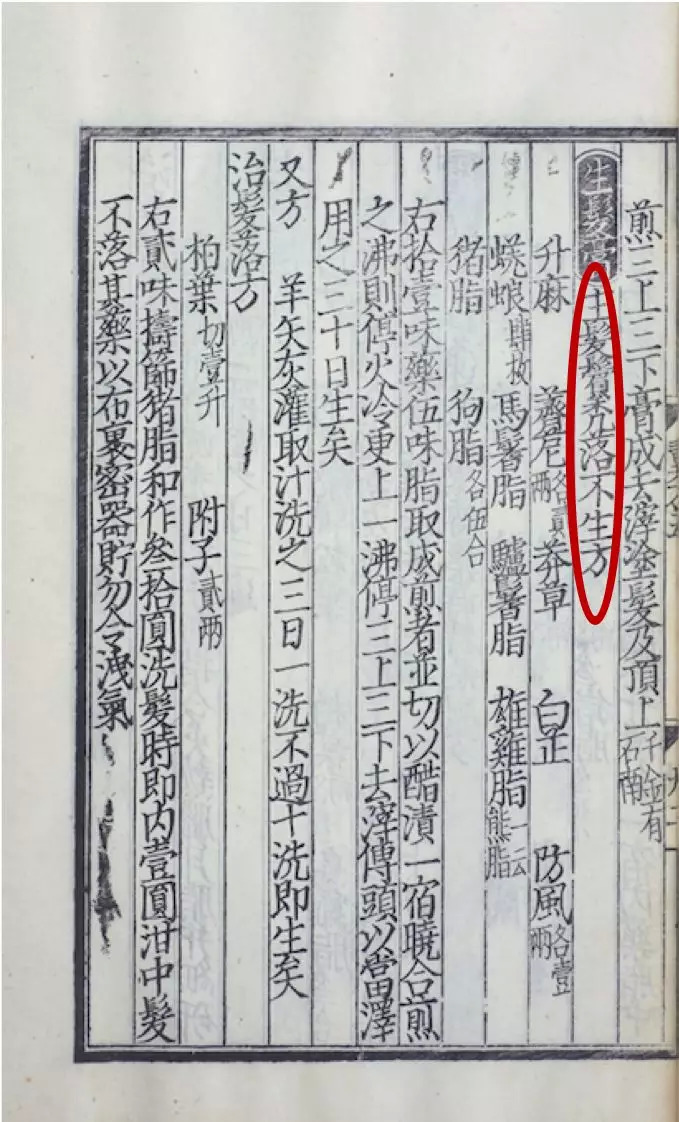 煎三上三下膏成去滓塗髮及頂上千金有石南
生髮膏 主髮鬢禿落不生方
升麻 薺苨各貳兩 莽草 白芷 防風各壹兩
蜣蜋肆枚 馬鬐脂 驢鬐脂 雄雞脂一云熊脂
猪脂 狗脂各伍合
右拾壹味藥伍味脂取成煎者並切以醋漬一宿曉合煎
之沸則停火冷更上一沸停三上三下去滓傅頭以當澤
用之三十日生矣
又方 羊矢灰灌取汁洗之三日一洗不過十洗即生矣
治髮落方
柏葉切壹升 附子貳兩
右貳味擣篩猪脂和作叁拾圓洗髮時即內壹圓泔中髮
不落其藥以布裹密器貯勿令洩氣